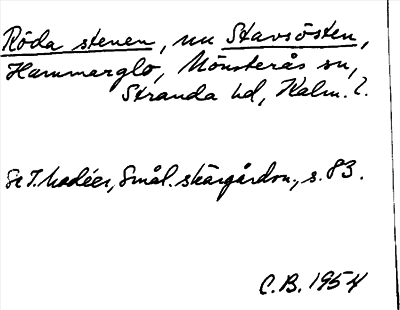 Röda stenen, nu Stavsösten,
Hammarglo, Mönsterås sn,
Stranda hd, Kalm. l.
Se T. Madéer, Smål. skärgårdsn., s. 83.
C.B. 1954